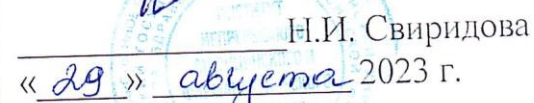 Н.И. Свиридова
« 29 » августа 2023 г.